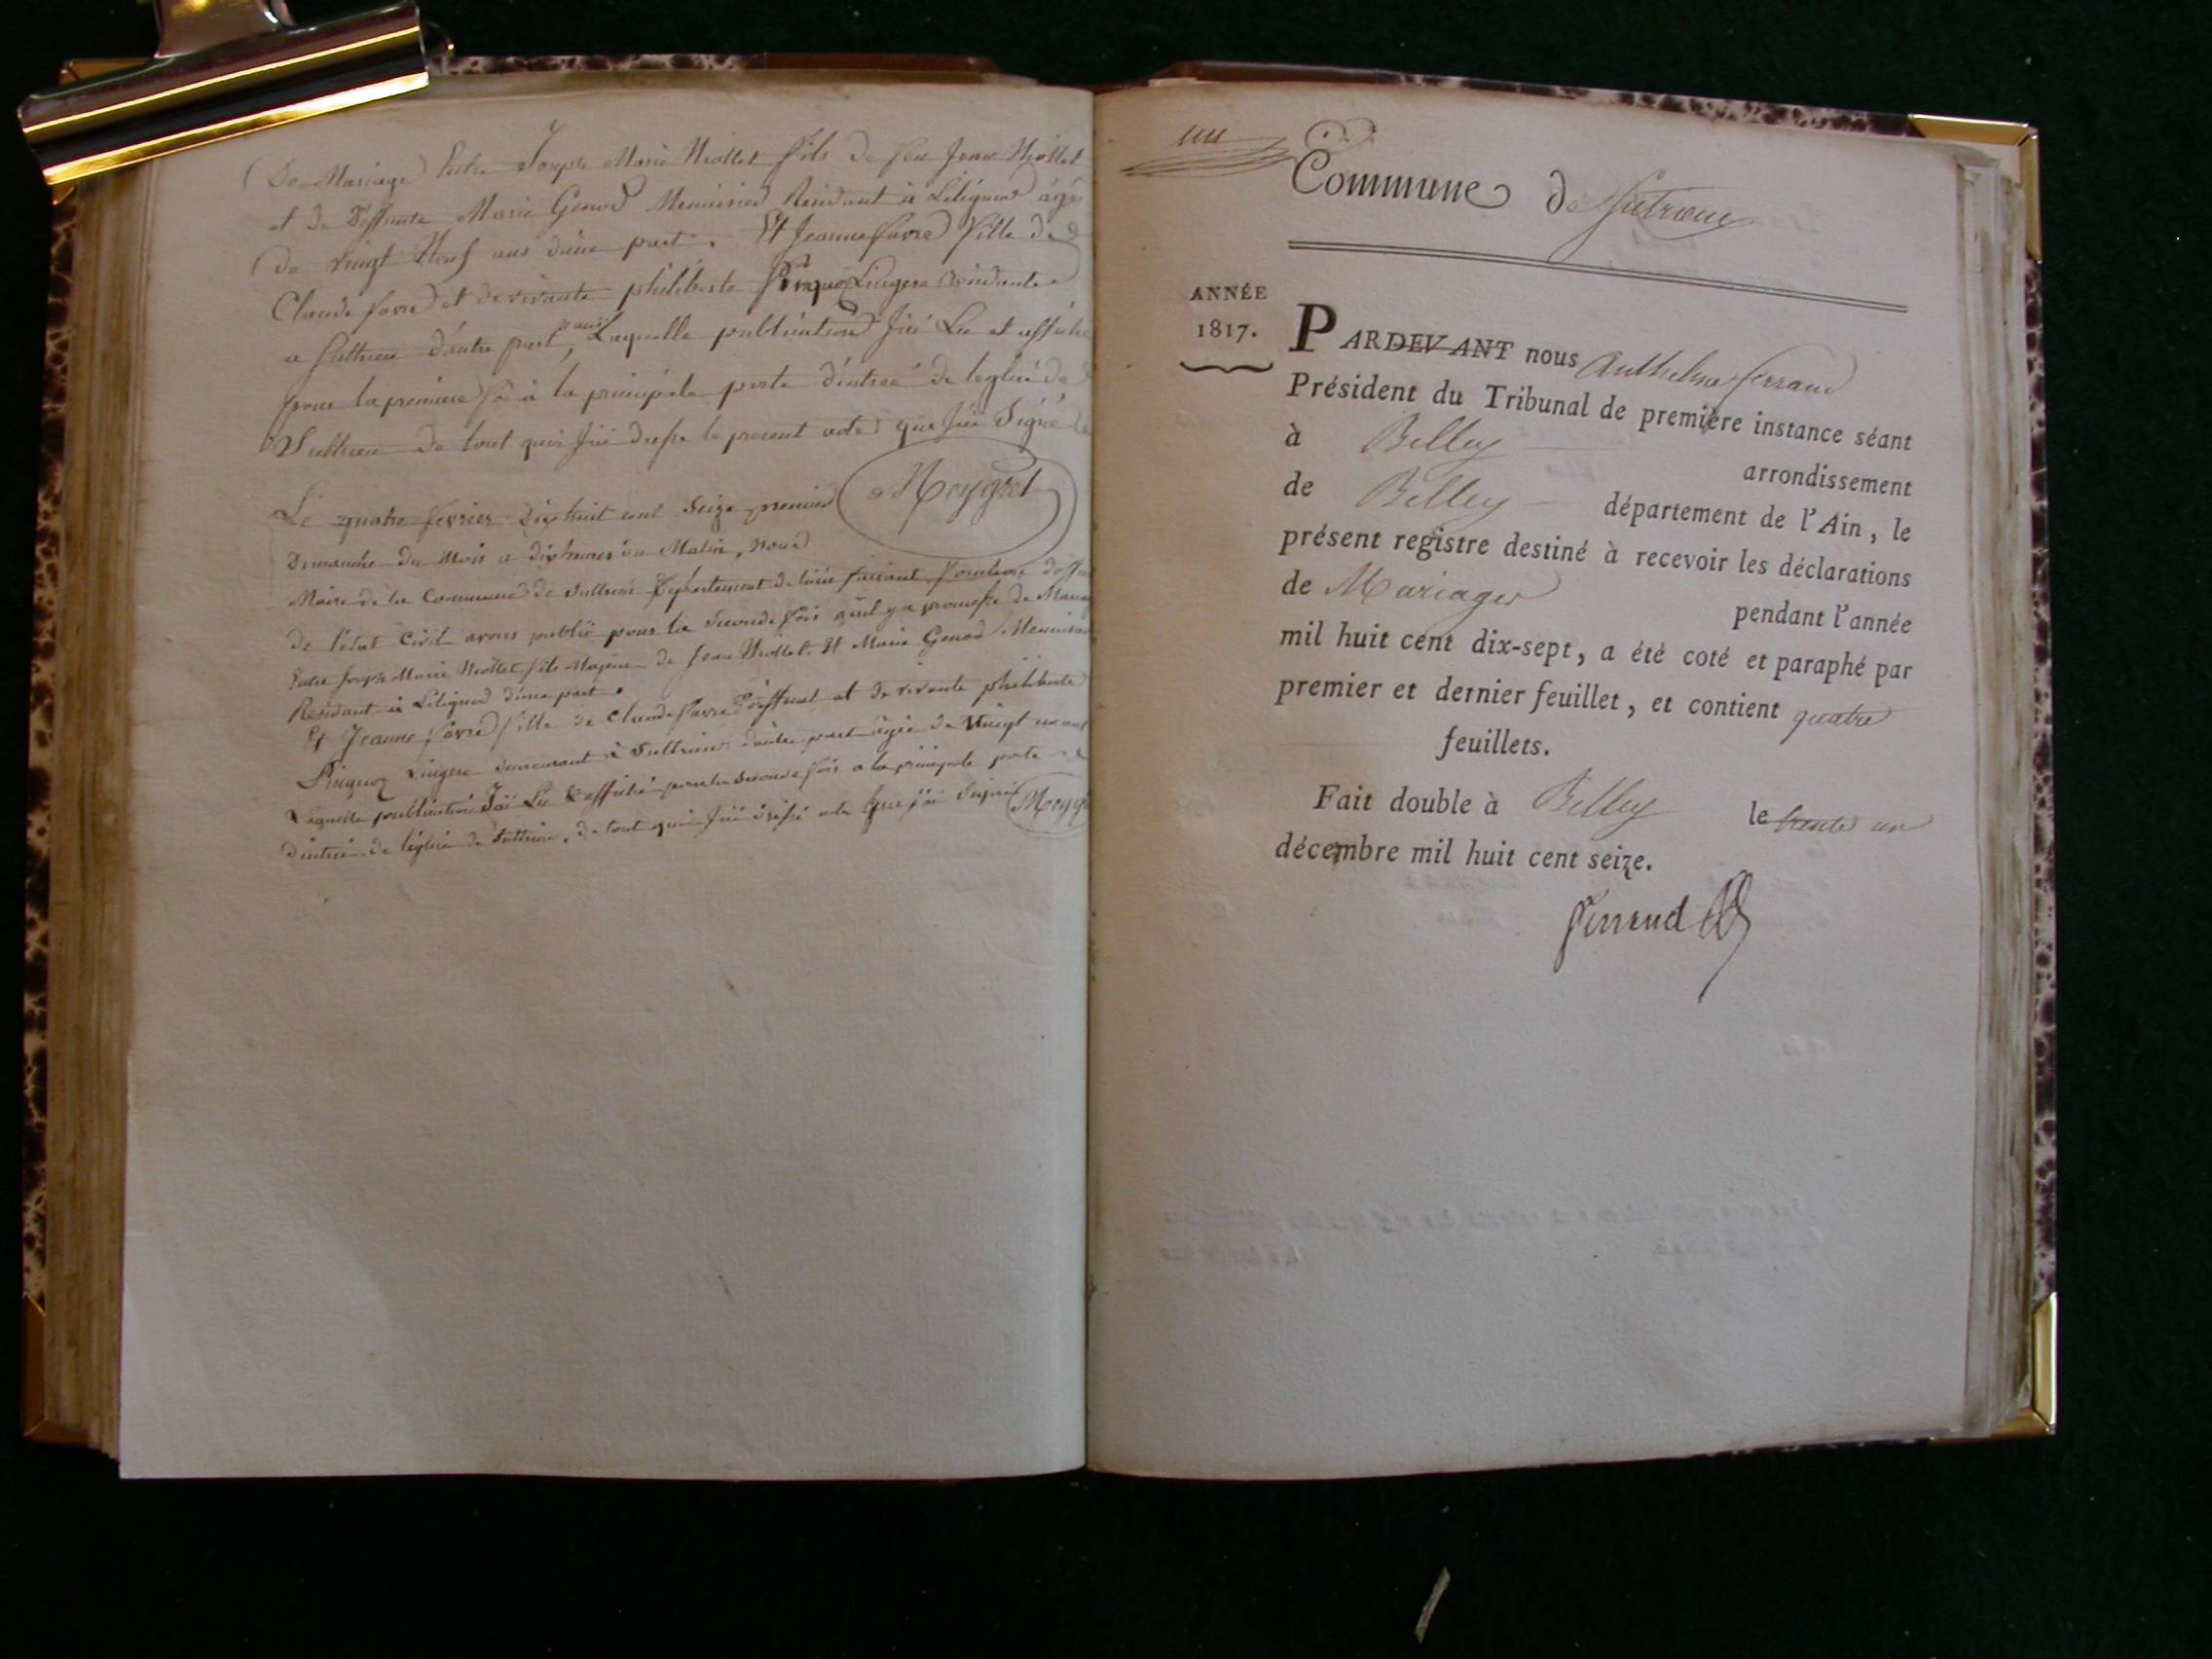 De Mariage Entre Joseph Marie Niollet fils de feu Jean Niollet
et de Deffunte Marie Genod Meunier Residant à Lilignod âgé
de vingt Neuf ans d'une part. Et Jeanne favre fille de
Claude favre et de vivante philiberte Pinquoz Lingere residante
a Suttrieu d'autre part, Laquelle publication J'ai Lu et affiché
pour la premiere foi à la principale porte d'entreé de leglise de
Suttrieu de tout quoi J'ai dressé le present acte que J'ai Signé
Meygret
Le quatre fevrier Dix huit cent Seize premier
Dimanche du Mois a dix heures du Matin, Nous
Maire de la Commune de Suttrieu Departement de l'ain faisant fonction
de l'état Civil avons publié pour la Seconde fois qu'il y a promesse de
Entre Joseph Marie Niollet fils Majeur de Jean Niollet Et Marie Genod Meunier
Residant à Lilignod d'une part.
Et Jeanne favre fille de Claude favre Deffunt et de vivante philiberte
Pinquoz Lingere demeurant à Suttrieu d'autre part âgée de Vingt
Laquelle publication J'ai Lu & affiché pour la Seconde fois a la principale porte
d'entreé de l'église de Suttrieu, de tout quoi J'ai dressé acte que j'ai Signé
un
Commune de Sutrieu
ANNÉE
1817.
PARDEVANT nous Anthelme ferrand
Président du Tribunal de première instance séant
à Belley arrondissement
de Belley département de l'Ain, le
présent registre destiné à recevoir les déclarations
de Mariages pendant l'année
mil huit cent dix-sept, a été coté et paraphé par
premier et dernier feuillet, et contient quatre
feuillets.
Fait double à Belley le trente un
décembre mil huit cent seize.
ferrand